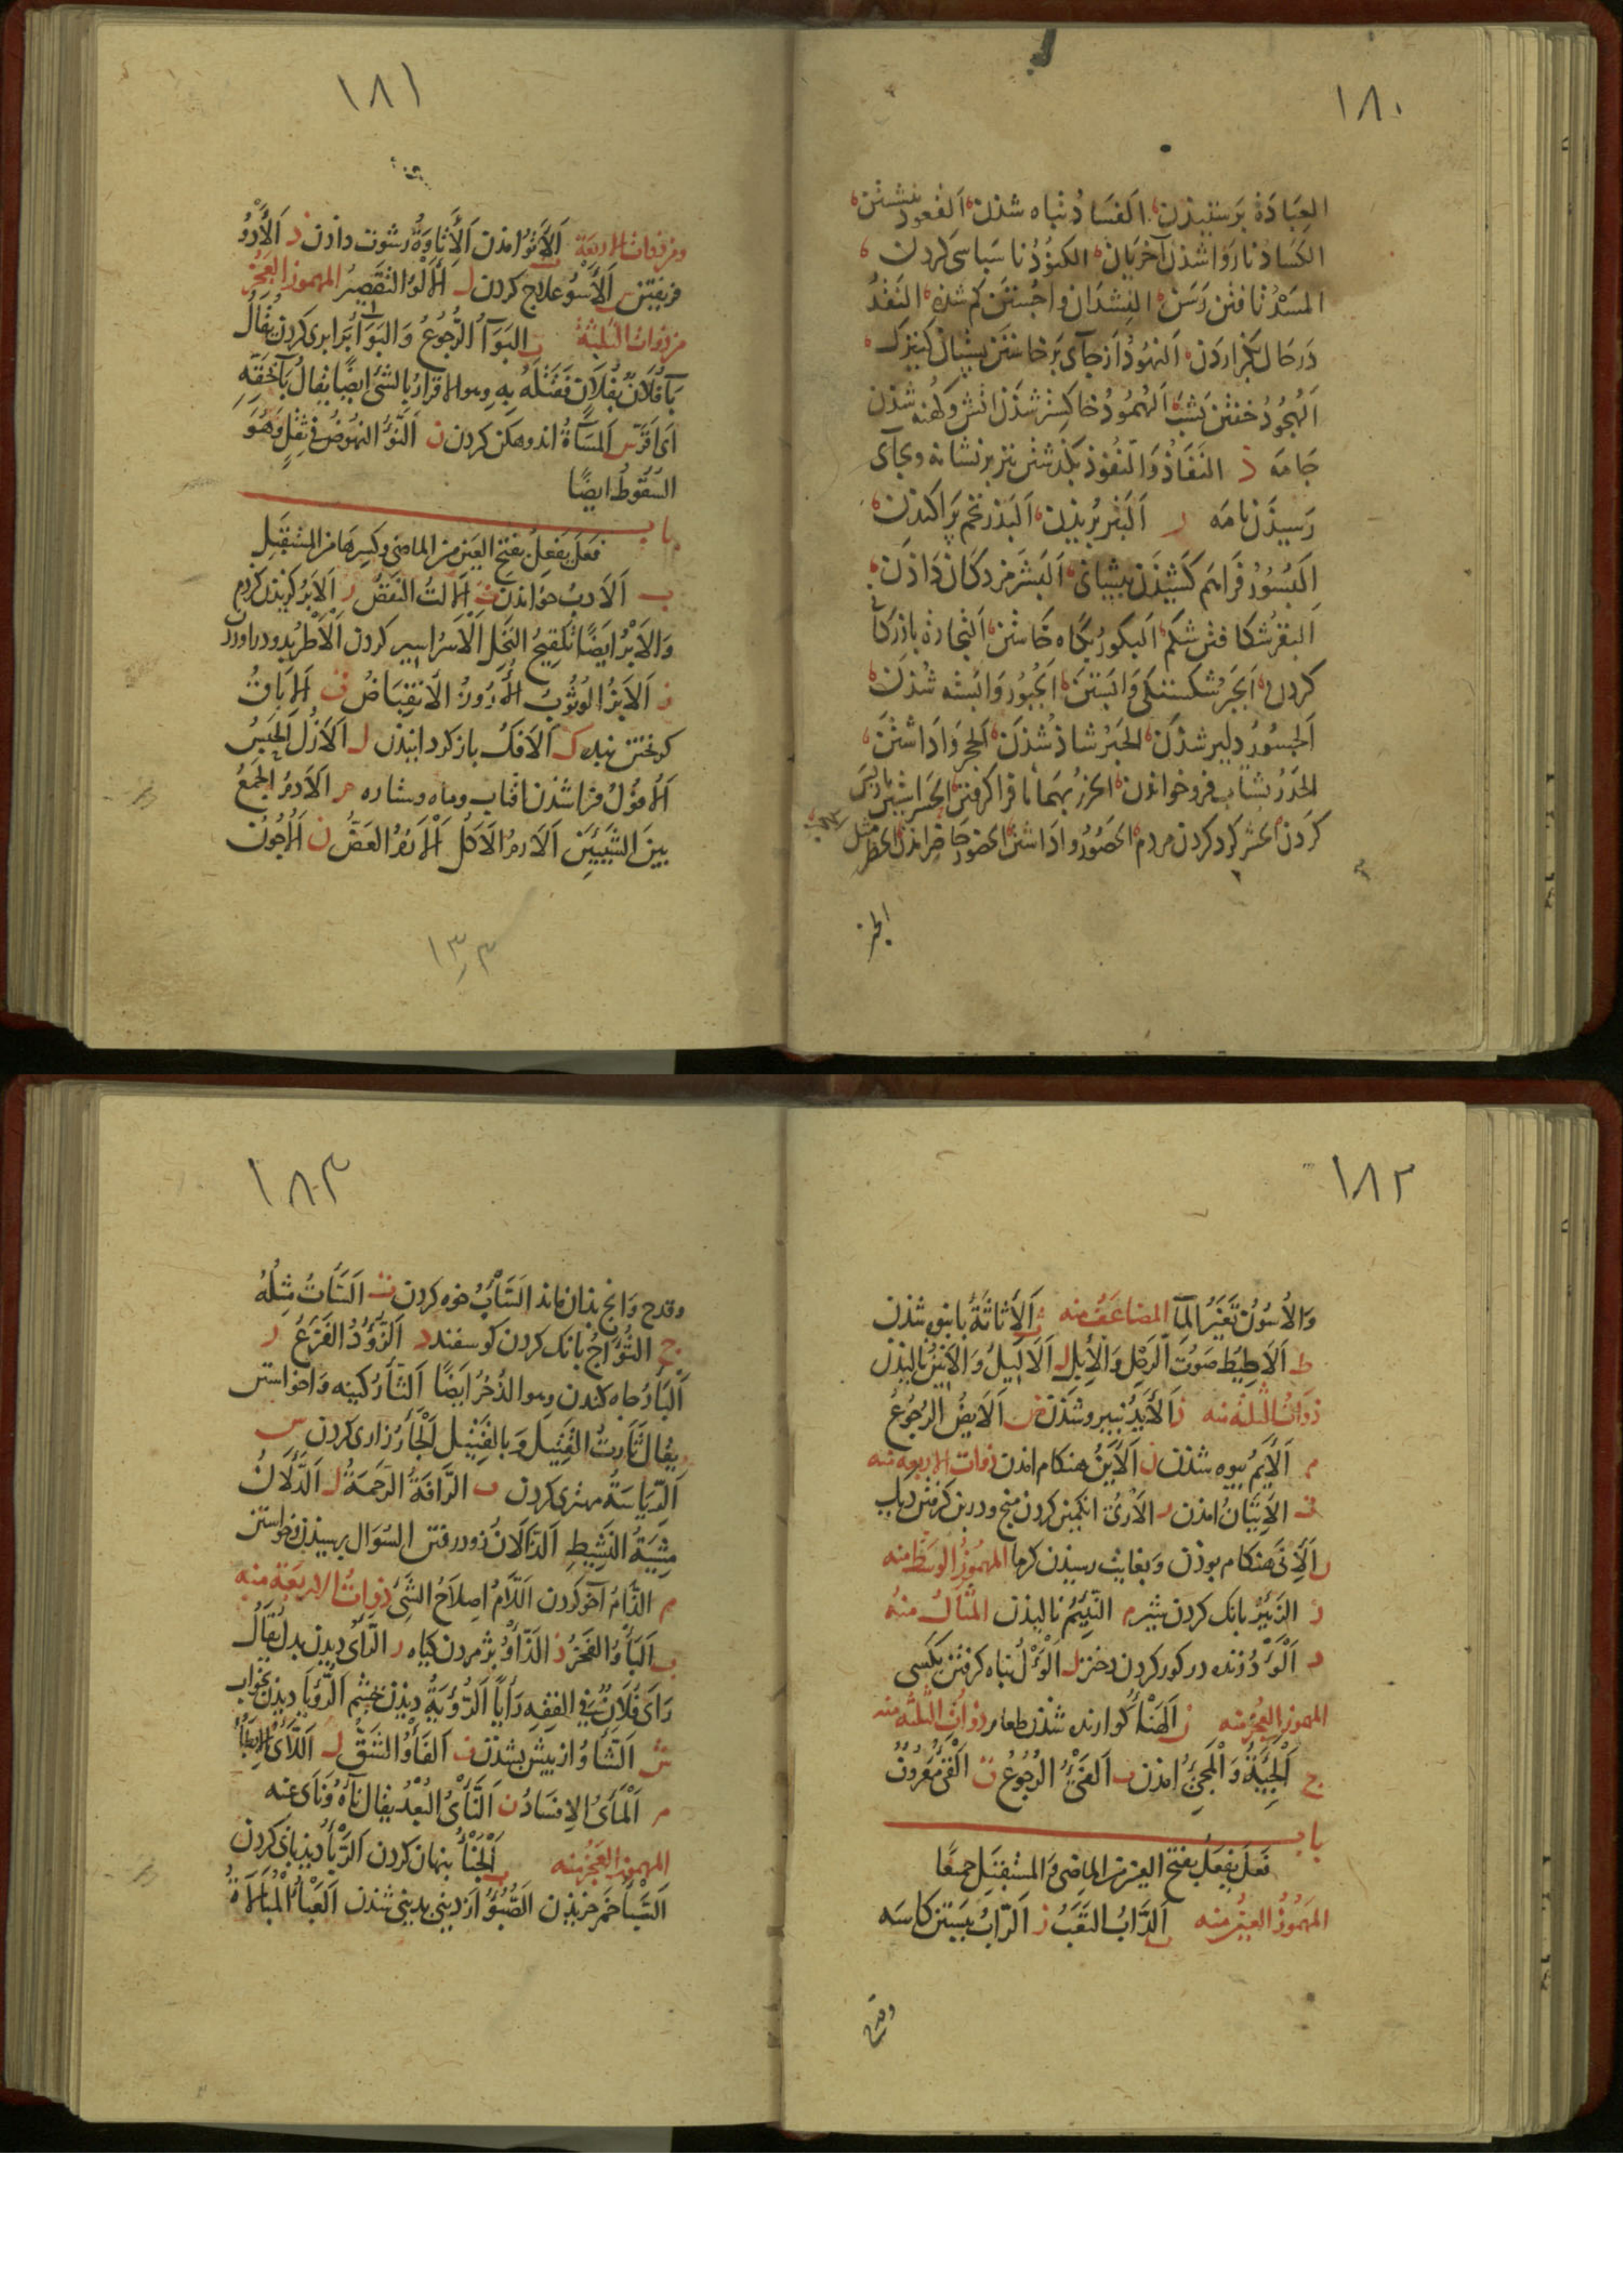 ١٨٠
العِبَادَة بَرستیذن الفَسَاد تباه شذن القُعود نشستن
الکسَاد ناروا شذن آخریان الکنُوذ ناسپاسی کردن
المَسْد تافتن رَسَن النِشدَان واجُستن کم شذه النَقْد
دَرحَال بکزاردن النهُود از جَای برخاستن پستان کنیزک
الهُجُود خفتن بشب الهُمُود خاکستر شذن اتش و کهنه شذن
جَامَه ذ النَفَاذ وَالنُفُوذ بگذشتن تیر بر نشانه و بجای
رَسیذن نامَه ر البَتر بُریذن البَذر تخم پَراکندن
البُسُور فَراهَم کَشیذن پیشانی البَشر مزدکان دَاذن
البَقر شکافتن شکم البکُور بگاه خاستن التجارة بازرکانی
کردن الجَبر شکسته وابَستن الجبُور وابسته شُذن
الجَسُور دلیر شذن الحَبر شاذ شذن الحجر وَاداشتن
الحَدر بشتاب فرو خواندن الحَزر بهمانا فرا کرفتن الحَسر
کردن الحَشر کرد کردن مردم الحَصُور واداشتن الحضور حاضر امذن الحظر مثله
الجز
١٨١
ومن ذوات الاربعَة الاَتْوُ امذن الأِتَاوَةُ رشوت دادن د الأَدْوُ
فریفتن س الأَسْوُ علاج کردن ل الألْوُ التَقصِیرُ المهموز العَجُز
من ذوات الثلثة ب البَوَآءُ الرُّجُوعُ وَالبَوَآءُ برابری کردن یقَالُ
بَآءَ فُلَانٌ بِفُلَانٍ فَقَتَلَهُ بِهِ وهو الاقرارُ بالشئ ایضًا یُقالُ بَآءَ بحَقّهِ
ای اَقَرّ س المَسَآءَةُ اندوهکن کردن ن النَّوْءُ النهُوضُ فی ثِقَلٍ وَهُوَ
السُقُوطُ ایضًا
باب
فَعَلَ یَفعِلُ بفتح العَین من الماضی وکسِرهَا من المستَقبَلِ
ب الاَدبُ خواندن ت الاَلتُ النَقصُ ر الاَبرُ کزیذن کزدم
وَالاَبْرُ ایضًا تَلقیحُ النخلِ الاَسرُ اسیر کردن الاَطْرُ بدو در اوردن
ز الاَبزُ الوُثُوبُ الأُرُوزُ الاِنقِبَاضُ ق الاِبَاقُ
کریختن بنده ک الاَفکُ باز کردانیذن ل الاَزْلُ الحَبسُ
الاُفُولُ فرا شذن افتاب وماه وستاره م الاَدمُ الجَمعُ
بینَ الشَیئَینِ الاَرمُ الاَکلُ الاَزمُ العَضُّ ن الاُجُونُ
١٣٣
١٨٢
وَالاُسُونُ تَغَیّرُ المآءِ المضاعَفُ منه ث الاَثاثَةُ بانبوه شذن
ط الاَطِیطُ صَوتُ الرَحلِ وَالاِبلِ ل الاَلِیلُ وَالاَنینُ نالیذن
ذوَاتُ الثلثة منه د الأَیدُ نیرومند شذن ض الاَیضُ الرُجُوعُ
م الاَیمُ بیوه شذن ن الاَینُ هنکام امذن ذوات الاربعه منه
ت الاِتیَانُ امذن ر الاَرْیُ انکبین کردن منج ودربن کرفتن دیک
ن الاَنیُ هنکام بوذن وَبغایت رسیذن کرما المهمُوزُ الوسَط منه
ز الزئیرُ بانک کردن شیر م النئیمُ نالیذن المثَالُ منهُ
د الوَأدُ زنده در کور کردن دختر ل الوَألُ پناه کرفتن بکسی
المهموز العجز منه ن الهَنأُ کوارنده شذن طعام ذوات الثلثه منه
ج الجَیئَةُ وَالمَجیئُ امذن ف الفَیْئُ الرُجُوعُ ق القَیْءُ مَعرُوفٌ
باب
فَعَلَ یفعَلُ بفتح العین من الماضی وَالمستقبَلِ جمیعًا
المهمُوزُ العین منه ب الدَأبُ التعَبُ ر الرَأبُ ببستن کاسَه
وقدح
١٨٣
وقدح وَانچ بذان ماند السَأبُ خوه کردن ت السَأتُ مِثلُهُ
ج الثُؤَاجُ بانک کردن کوسفند د الزُؤدُ الفَزَعُ ر
البَأرُ چاه کندن وهو الذُخرُ ایضًا الثَأرُ کینه واخواستن
یقالُ ثَأرتُ القَتِیلَ وَبالقَتِیلِ الجَأرُ زاری کردن س
الرِیَاسَةُ مهتری کردن ف الرَأفَةُ الرَحمَةُ ل الدَأَلَانُ
مِشیَةُ النَشِیطِ الذَأَلَانُ زود رفتن السُؤَال پرسیذن وخواستن
م الذَأمُ آهو کردن اللَأمُ اِصلَاحُ الشَیئِ ذوات الاربعَة منه
ب البَأوُ الفَخرُ ذ الذَأوُ پژمردن کیاه ر الرَأیُ دیدن بدل یُقَالُ
رَأی فُلَانٌ فی الفِقهِ رَأیًا الرُؤیَةُ دیذن بچشم الرُؤیَا دیذن بخواب
ش الشَأوُ از پیش بشذن ف الفَأوُ الشَقُّ ل اللَأیُ الابطَاءُ
م المَأیُ الاِفسَادُ ن النَأیُ البُعدُ یقال نَأهُ وَنَأی عنه
المهموز العَجُز منه ب الخَبأُ پنهان کردن الرَبأُ دیذبانی کردن
السَبأُ خمر خریذن الصُبُوءُ از دینی بدینی شذن العَبأُ المُبَالَاةُ